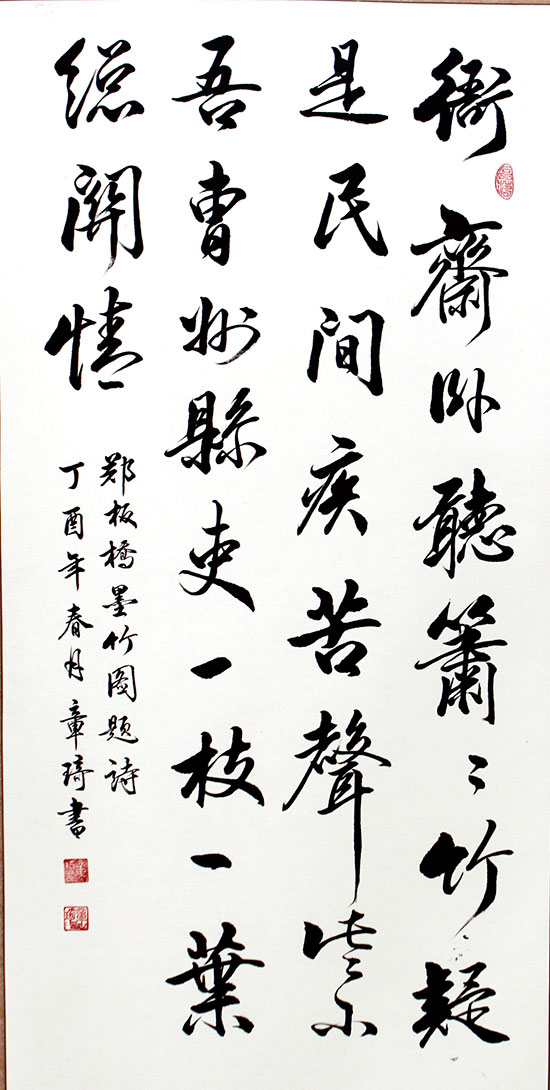 衙齋卧聽簫〻竹疑
是民間疾苦聲些小
吾曹州縣吏一枝一葉
総關情
鄭板橋墨竹圖題詩
丁酉年春月章琦書